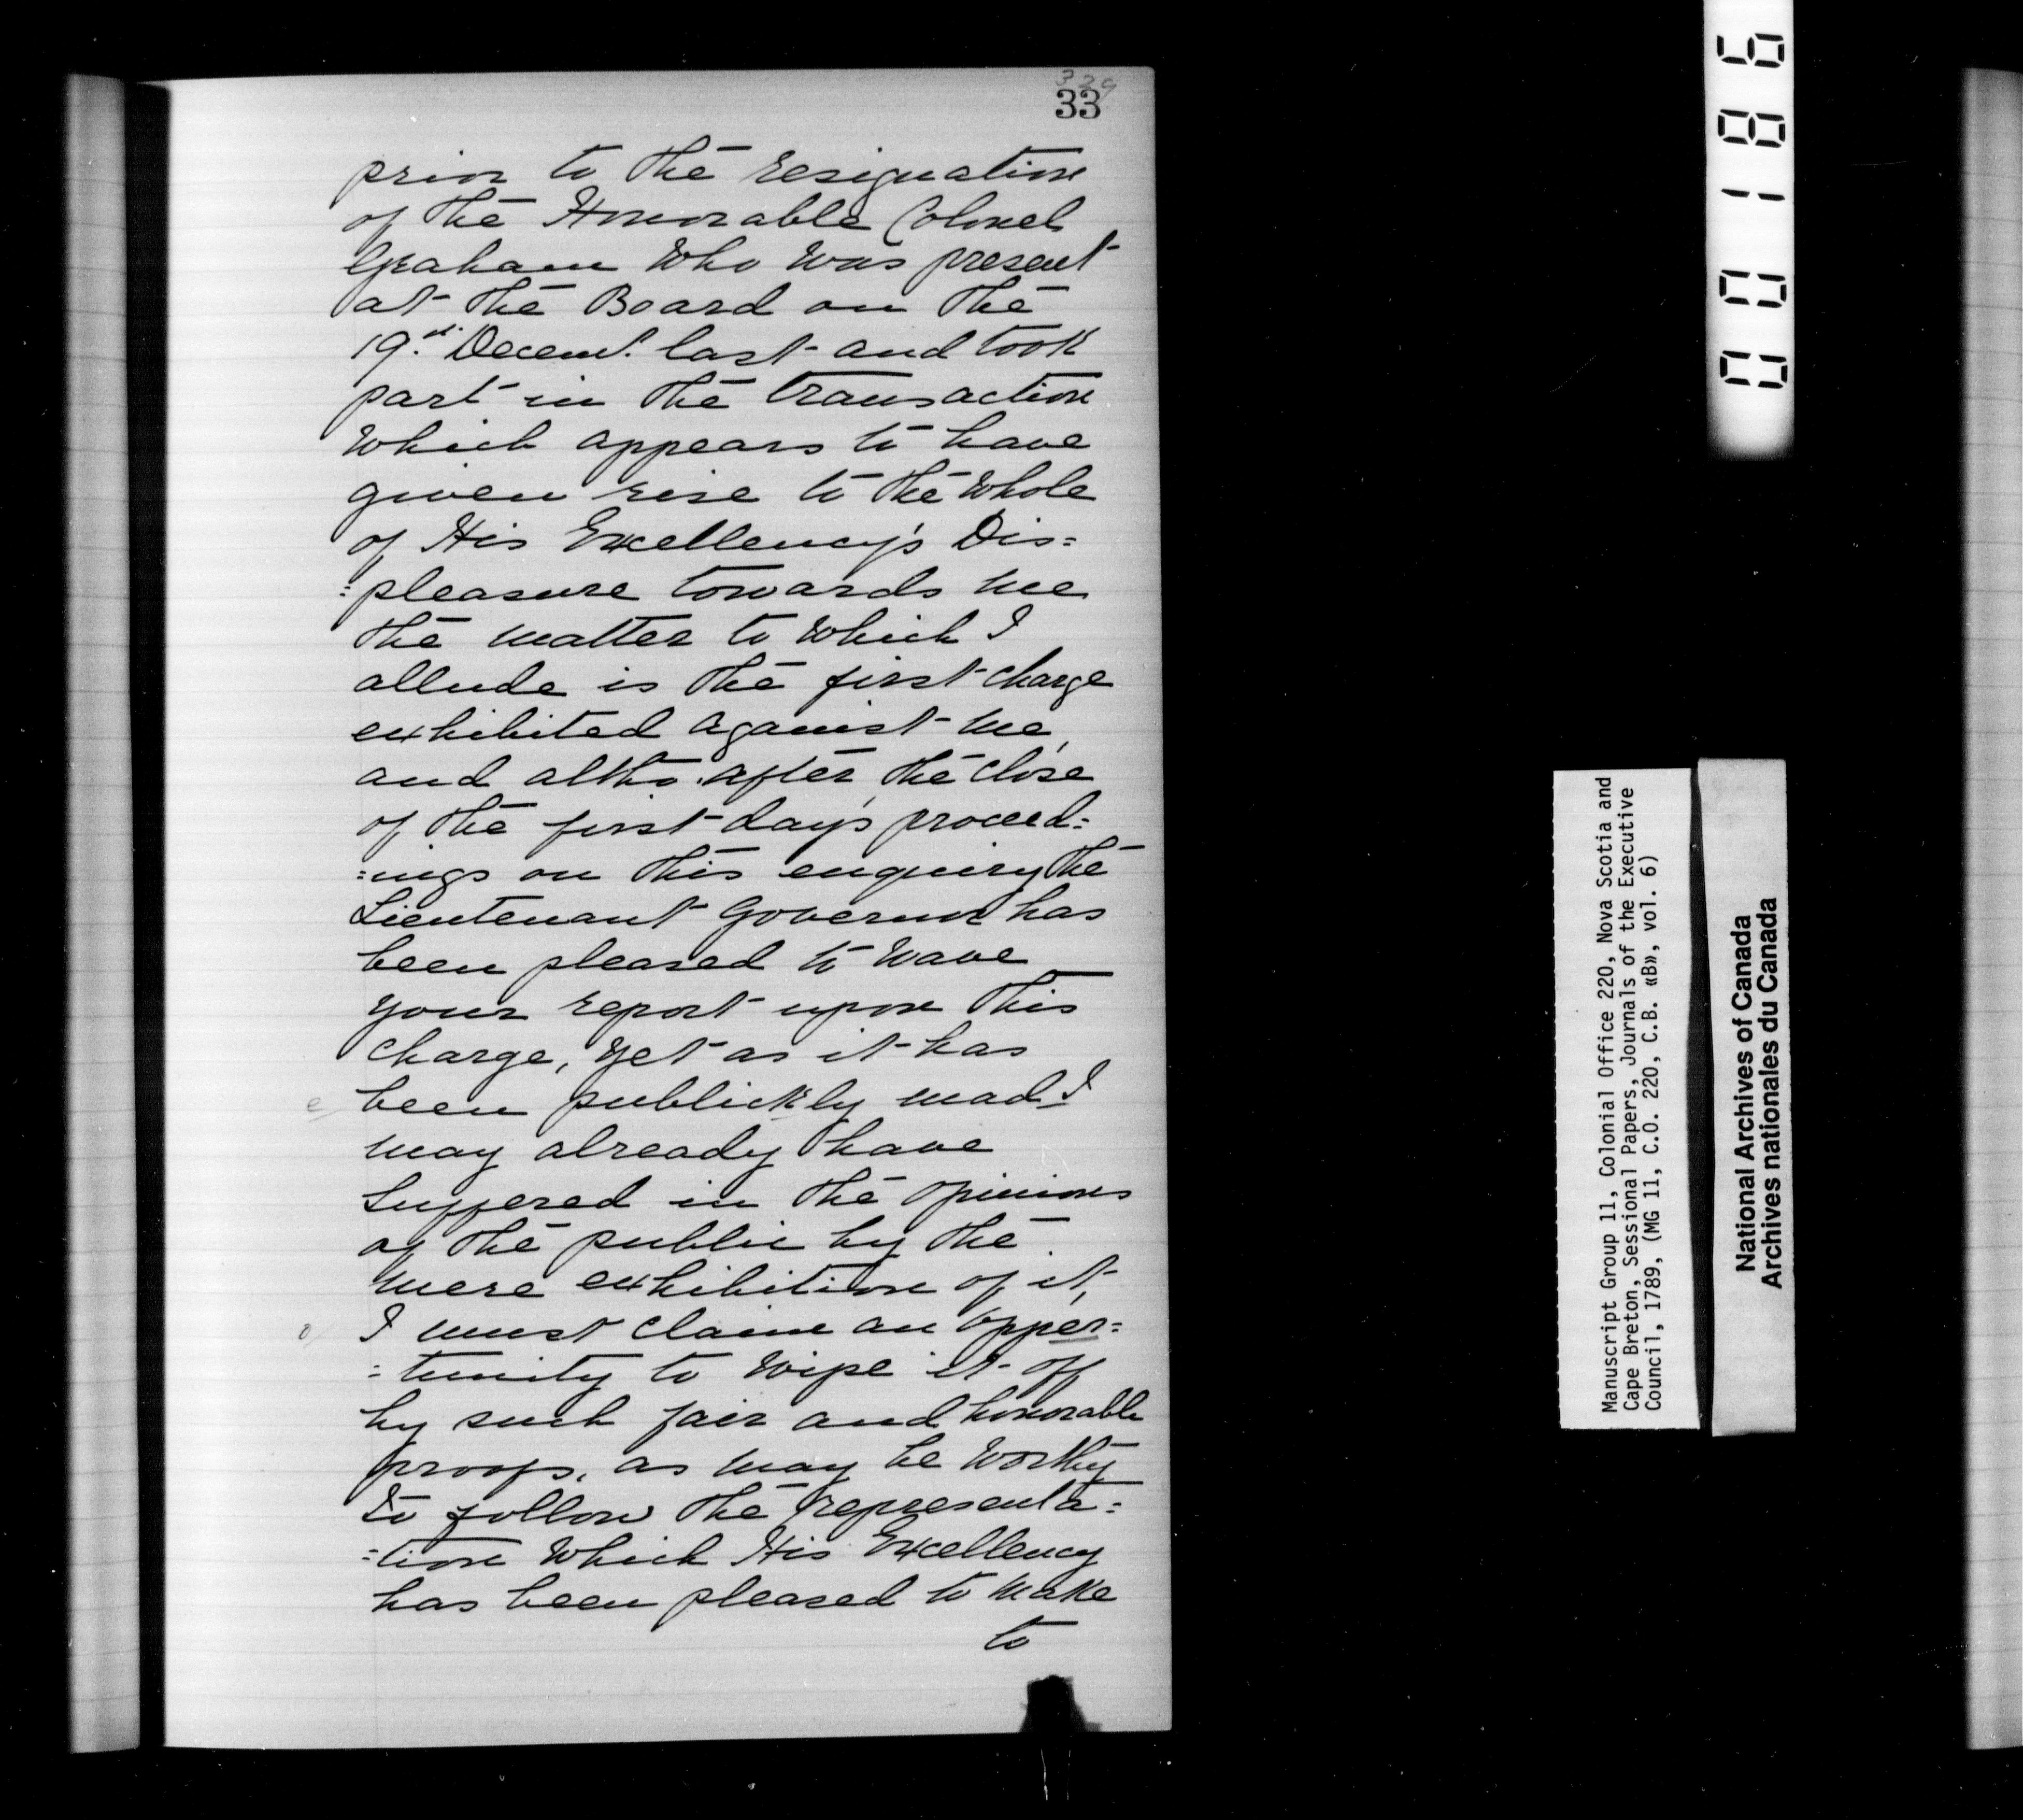 329
33
prior to the resignation
of the Honorable Colonel
Graham who was present
at the Board on the
19.th Decem.r last and took
part in the transaction
which appears to have
given rise to the whole
of His Excellency's Dis=
=pleasure towards me
the matter to which I
allude is the first charge
exhibited against me,
and altho' after the close
of the first day's proceed=
=ings on this enquiry the
Lieutenant Governor has
been pleased to wave
your report upon this
charge, yet as it has
e/ been publickly mad I
may already have
suffered in the opinions
of the public by the
mere exhibition of it,
o/ I must claim an opper=
=tunity to wipe it off
by such fair and honorable
proofs, as may be worthy
to follow the representa=
=tion which His Excellency
has been pleased to make
to
00186
Manuscript Group 11, Colonial Office 220, Nova Scotia and
Cape Breton, Sessional Papers, Journals of the Executive
Council, 1789, (MG 11, C.O. 220, C.B. «B», vol. 6)
National Archives of Canada
Archives nationales du Canada